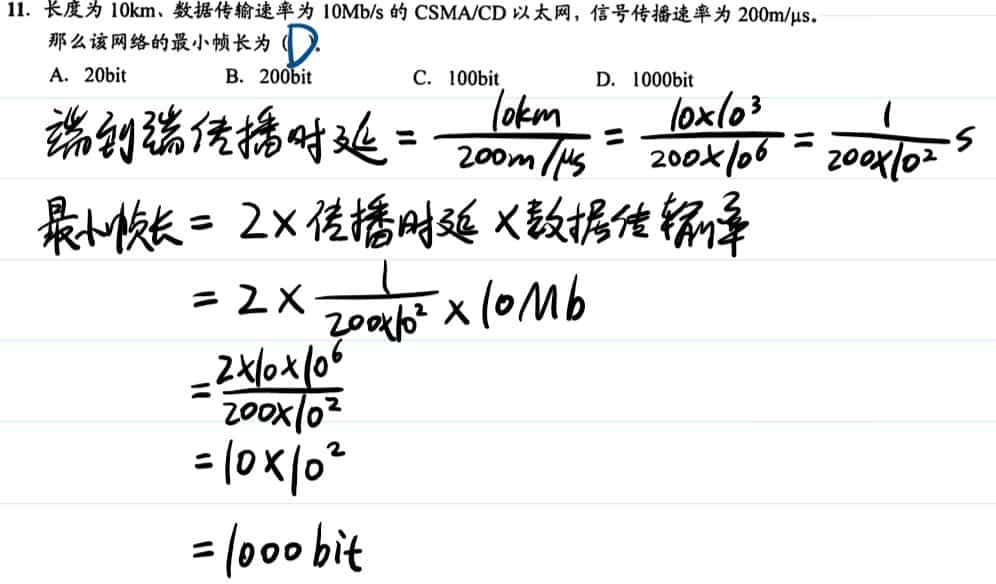 11. 长度为 10km、数据传输速率为 10Mb/s 的 CSMA/CD 以太网，信号传播速率为 200m/μs。
那么该网络的最小帧长为（D）.
A. 20bit B. 200bit C. 100bit D. 1000bit
端到端传播时延 = 10km / 200m/μs = 10×10³ / 200×10⁶ = 1 / 200×10² s
最小帧长 = 2×传播时延×数据传输率
= 2× 1 / 200×10² ×10Mb
= 2×10×10⁶ / 200×10²
= 10×10²
= 1000bit